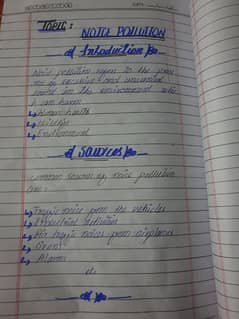 TOPIC:
NOISE POLLUTION
Introduction
Noise pollution refers to the
of excessive and unwanted
sound in the environment
can harm
Human health
Wildlife
Environment
Sources
Common sources of noise pollution
are:
Traffic noise from the vehicles
Industrial activities
Air traffic noise from airplanes
Alarms